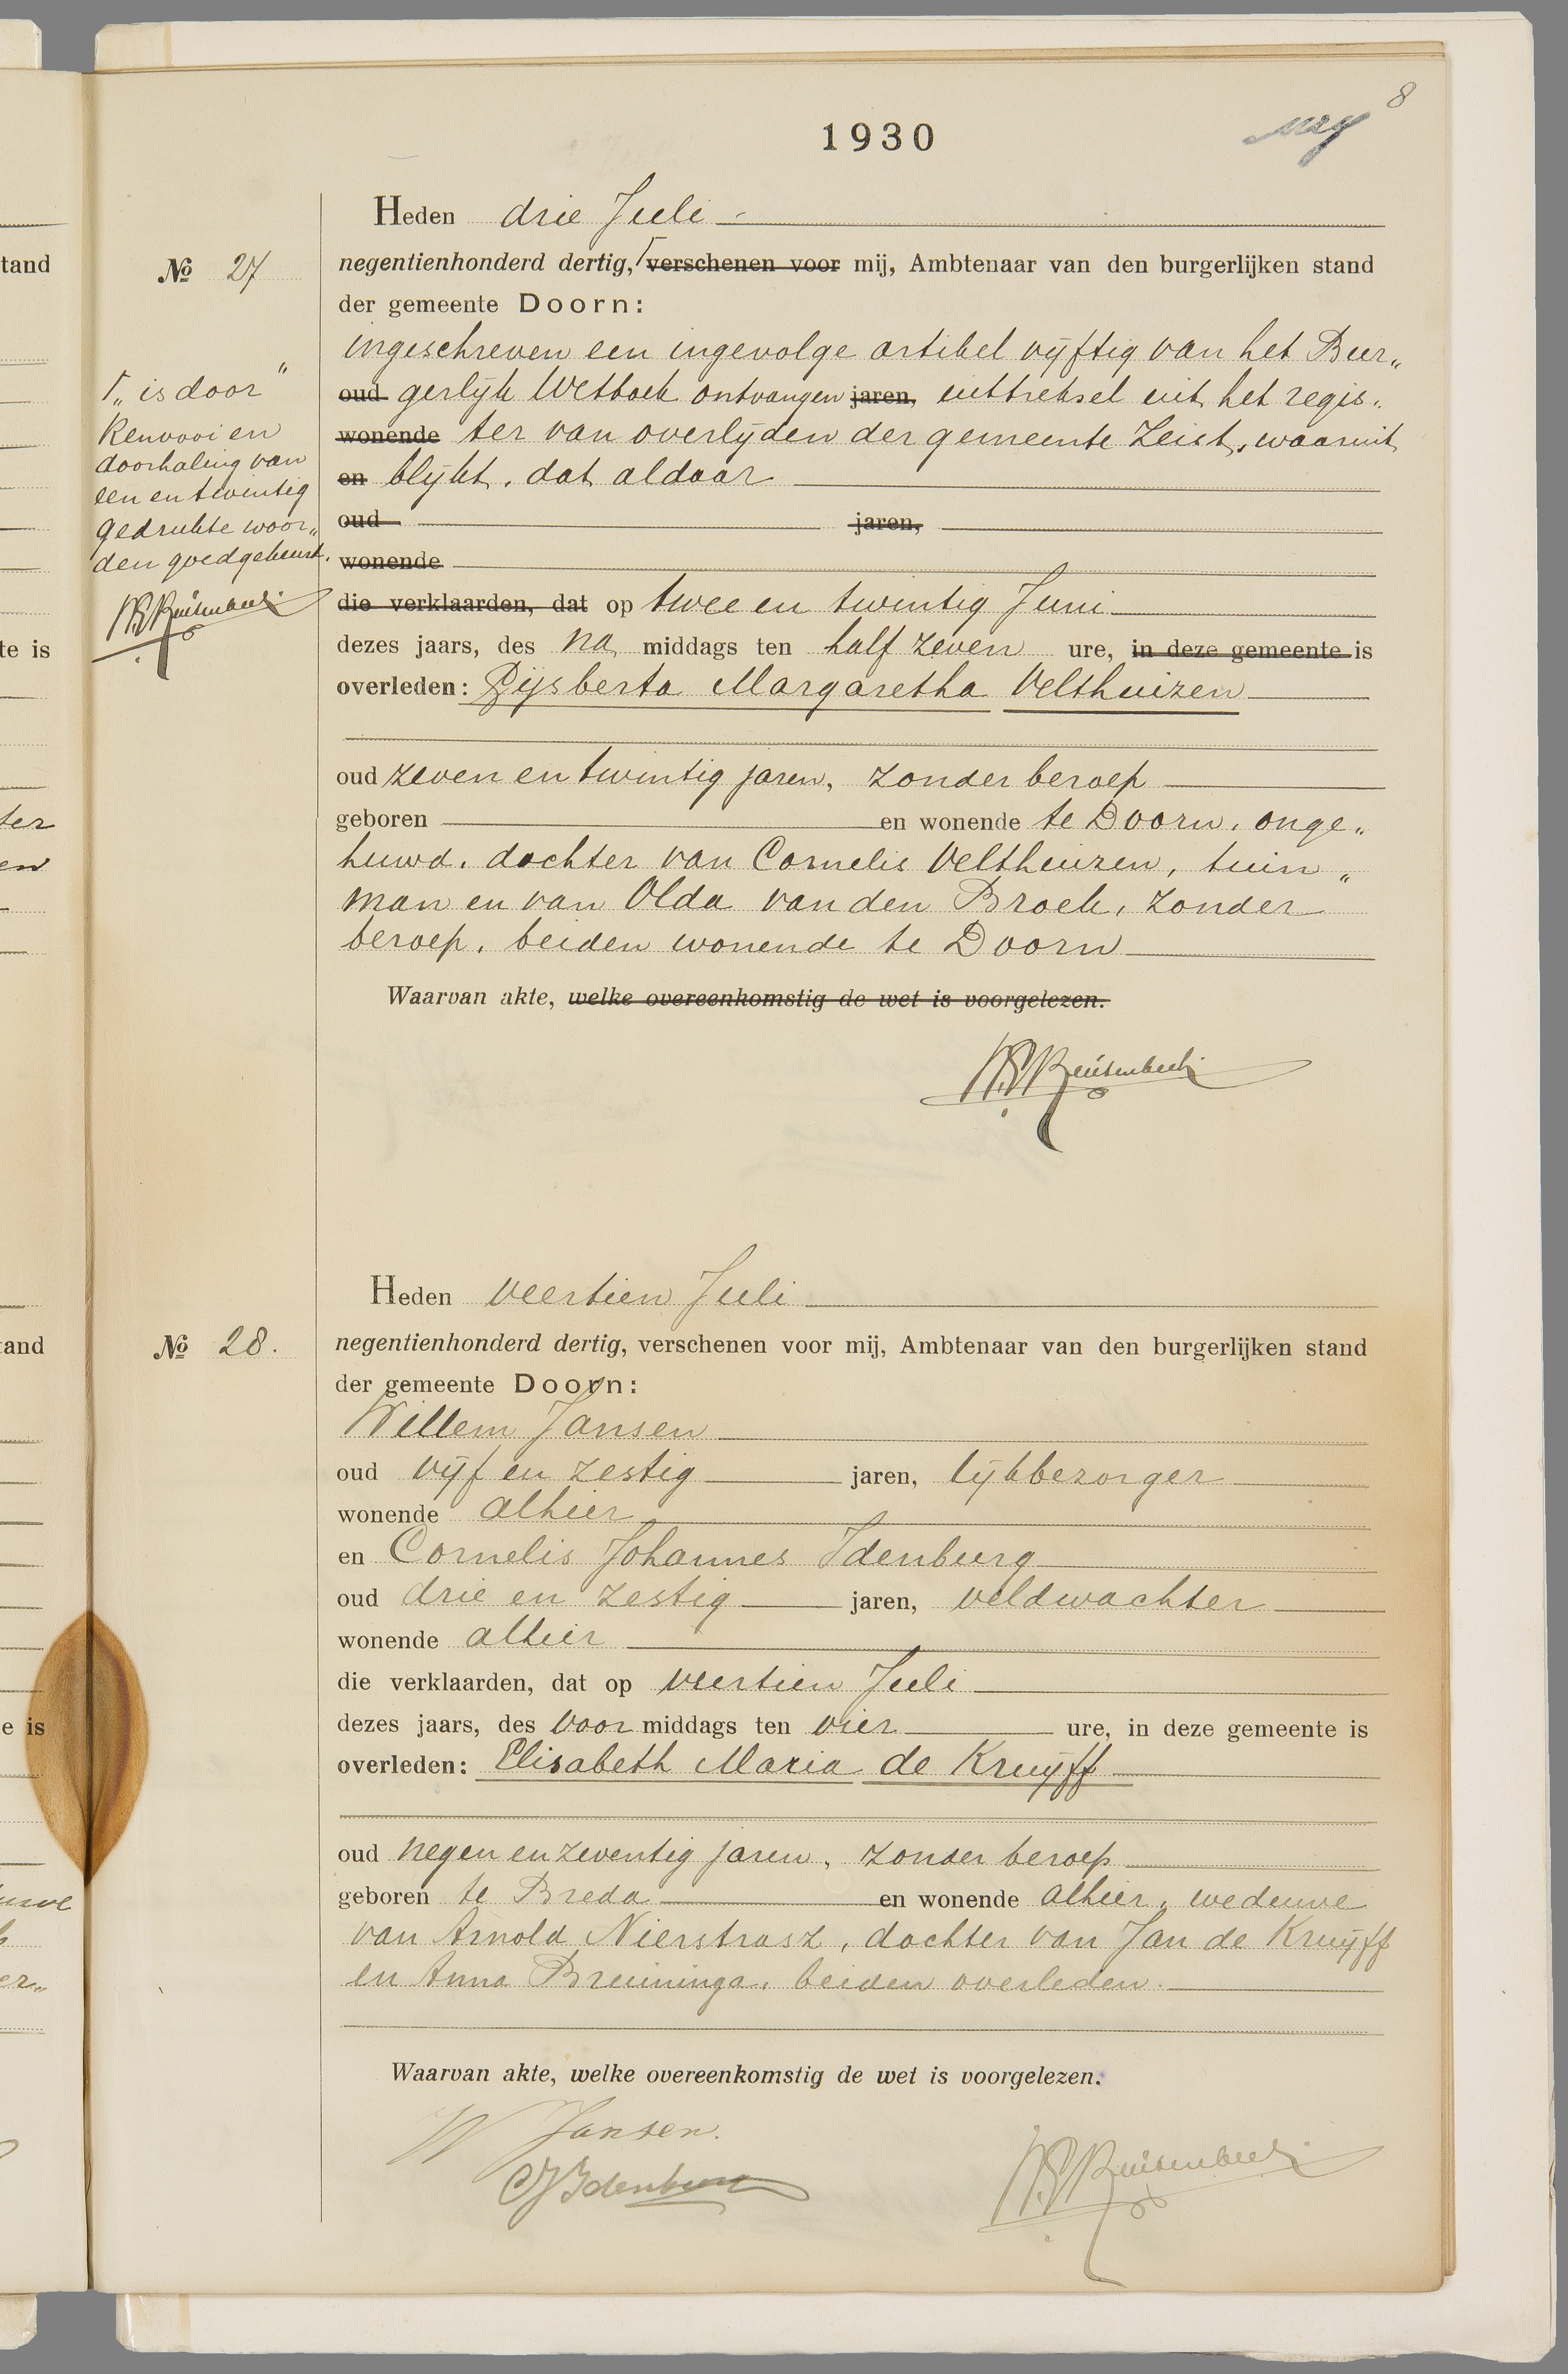 8
1930
Heden drie Juli
No 27
negentienhonderd dertig, ⌈ verschenen voor mij, Ambtenaar van den burgerlijken stand
der gemeente Doorn:
ingeschreven een ingevolge artikel vijftig van het Bur„
oud gerlijk Wetboek ontvangen jaren, uittreksel uit het regis„
wonende ter van overlijden der gemeente Zeist, waaruit
en blijkt, dat aldaar
oud jaren,
wonende
die verklaarden, dat op twee en twintig Juni
dezes jaars, des na middags ten half zeven ure, in deze gemeente is
overleden: Gijsberta Margaretha Velthuizen
oud zeven en twintig jaren, zonder beroep
geboren en wonende te Doorn, onge„
huwd, dochter van Cornelis Velthuizen, tuin„
man en van Alda van den Broek, zonder
beroep, beiden wonende te Doorn
Waarvan akte, welke overeenkomstig de wet is voorgelezen.
⌈ „is door"
Renvooi en
doorhaling van
een en twintig
gedrukte woor„
den goedgekeurd.
Heden veertien Juli
No 28.
negentienhonderd dertig, verschenen voor mij, Ambtenaar van den burgerlijken stand
der gemeente Doorn:
Willem Jansen
oud vijf en zestig jaren, lijkbezorger
wonende alhier
en Cornelis Johannes Idenburg
oud drie en zestig jaren, veldwachter
wonende alhier
die verklaarden, dat op veertien Juli
dezes jaars, des voor middags ten vier ure, in deze gemeente is
overleden: Elisabeth Maria de Kruijff
oud negen en zeventig jaren, zonder beroep
geboren te Breda en wonende alhier, weduwe
van Arnold Nierstrasz, dochter van Jan de Kruijff
en Anna Breuninga, beiden overleden.
Waarvan akte, welke overeenkomstig de wet is voorgelezen.
W Jansen.
CJ Idenburg